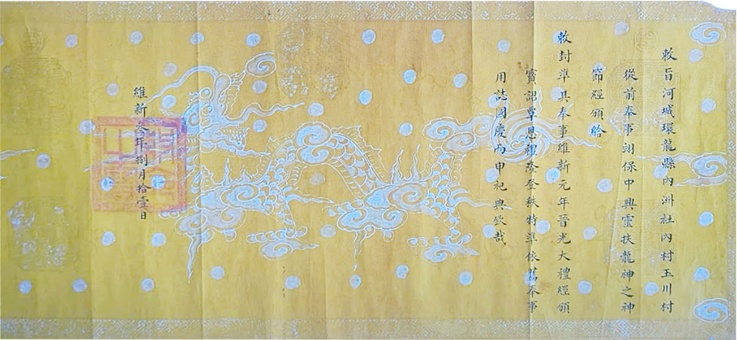 敕旨河城環龍縣內洲社內村玉川村
從前奉事翊保中興靈扶龍神之神
節經頒給
敕封準其奉事維新元年晉光大禮經頒
寶詔覃恩禮隆登秩特準依舊奉事
用誌國慶而申祀典欽哉
維新叁年捌月拾壹日